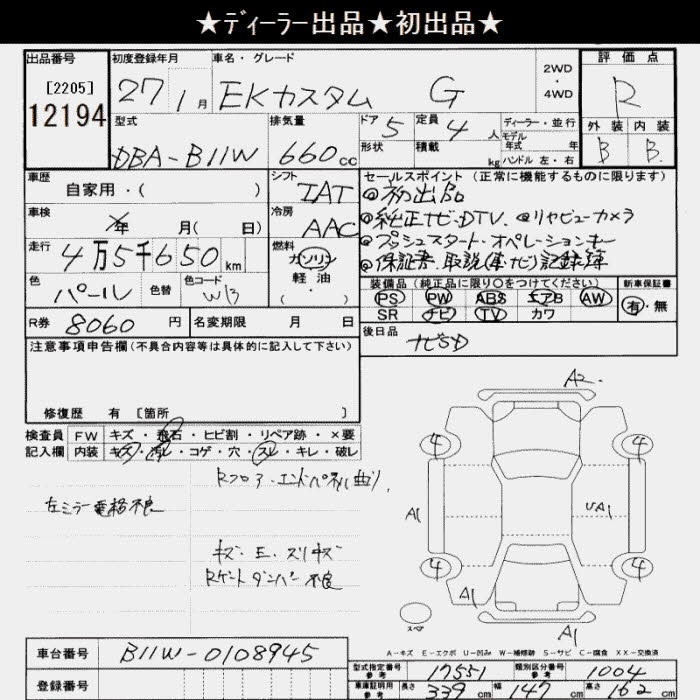 ★ディーラー出品★初出品★
出品番号 初度登録年月 車名・グレード 2WD・4WD 評価点
[2205] 12194 27 1月 EKカスタム G R
外装 内装
B B
型式 排気量 ドア 5 定員 4人 ディーラー・並行
形状 積載 kg モデル年式 年
DBA-B11W 660cc ハンドル 左・右
車歴 シフト セールスポイント(正常に機能するものに限ります)
自家用・( ) IAT ◎初出品
車検 年 月( 日) 冷房 AAC ◎純正ナビ・DTV. ◎リヤビューカメラ
走行 燃料 ◎プッシュスタート・オペレーションキー
4万5千650km ガソリン 軽油 ( ・ ) ◎保証書・取説(車ナビ)記録簿
色 色替 色コード 装備品(純正品に限り○をつけてください) 新車保証書
パール W13 PS PW ABS エアB AW 有・無
SR ナビ TV カワ
R券 8060円 名変期限 月 日 後日品 ナビSD
注意事項申告欄(不具合内容等は具体的に記入して下さい)
修復歴 有 [箇所 ]
検査員 FW キズ・飛石・ヒビ割・リペア跡・×要
記入欄 内装 キズ・汚レ・コゲ・穴・スレ・キレ・破レ
Rフロア・エンドパネル曲り
左ミラー電格不良
キズ・E・スリキズ
Rゲートダンパー不良
A2
4 4
A1 UA1
4 4
A1
スペア A1
A-キズ E-エクボ U-凹み W-補修跡 S-サビ C-腐食 XX-交換済
車台番号 B11W-0108945
型式指定番号 参考 17551 類別区分番号 参考 1004
登録番号
車庫証明用 参考 長さ 339cm 幅 147cm 高さ 162cm